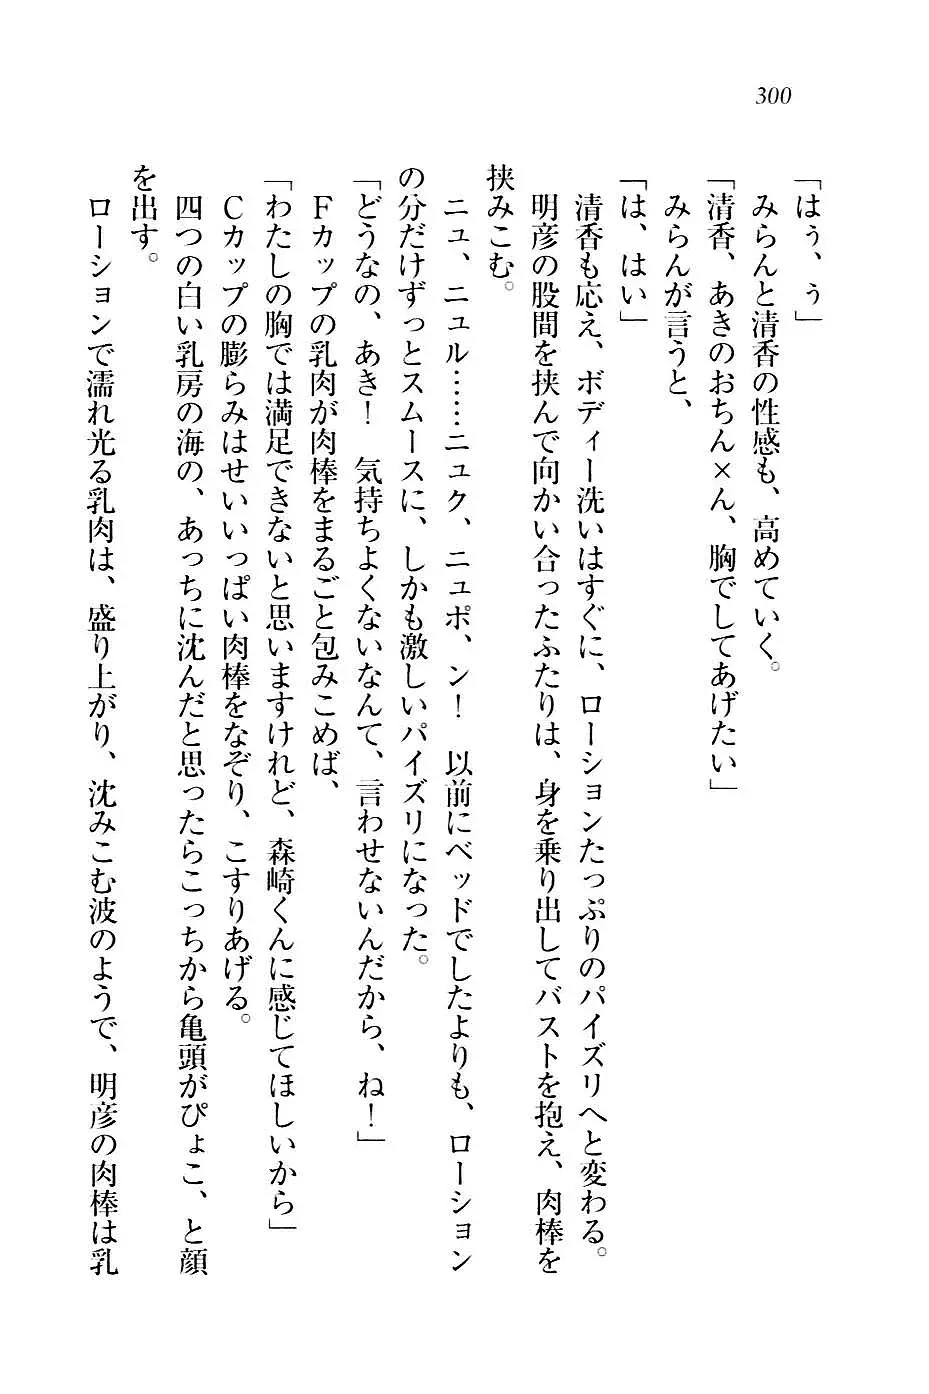 300
「はぅ、ぅ」
みらんと清香の性感も、高めていく。
「清香、あきのおちん×ん、胸でしてあげたい」
みらんが言うと、
「は、はい」
清香も応え、ボディー洗いはすぐに、ローションたっぷりのパイズリへと変わる。
明彦の股間を挟んで向かい合ったふたりは、身を乗り出してバストを抱え、肉棒を
挟みこむ。
ニュ、ニュル……ニュク、ニュポ、ン！　以前にベッドでしたよりも、ローション
の分だけずっとスムースに、しかも激しいパイズリになった。
「どうなの、あき！　気持ちよくないなんて、言わせないんだから、ね！」
Ｆカップの乳肉が肉棒をまるごと包みこめば、
「わたしの胸では満足できないと思いますけれど、森崎くんに感じてほしいから」
Ｃカップの膨らみはせいいっぱい肉棒をなぞり、こすりあげる。
四つの白い乳房の海の、あっちに沈んだと思ったらこっちから亀頭がぴょこ、と顔
を出す。
ローションで濡れ光る乳肉は、盛り上がり、沈みこむ波のようで、明彦の肉棒は乳